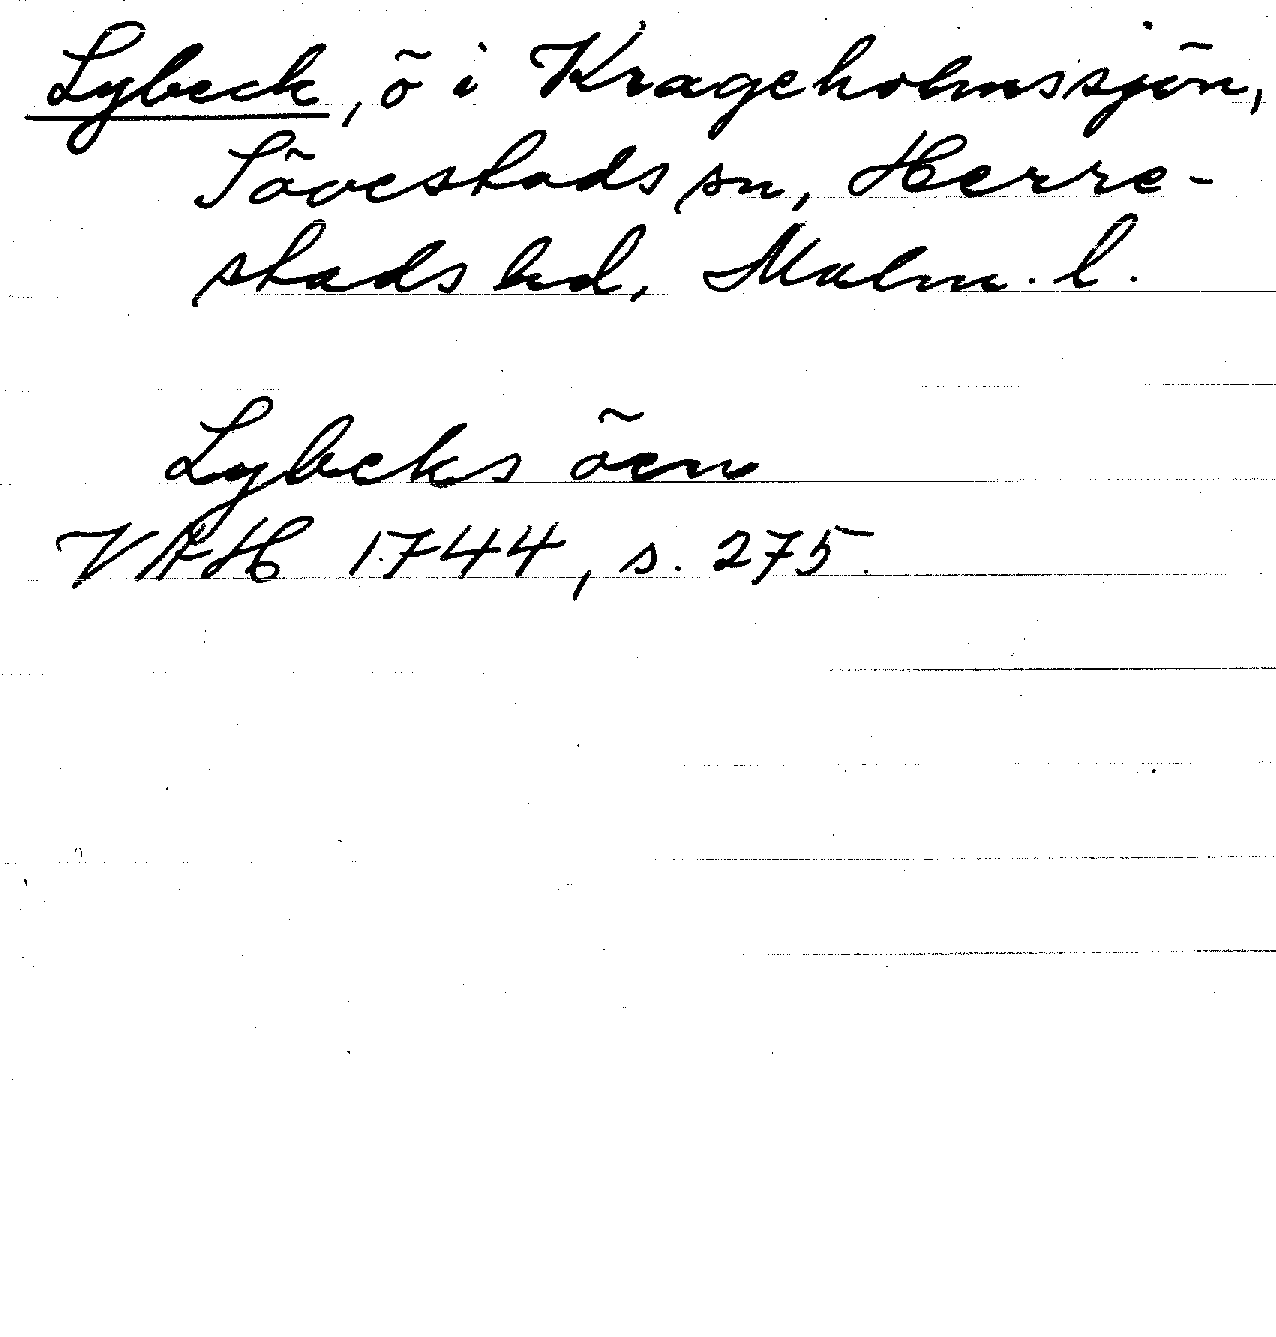 Lybeck, ö i Krageholmssjön,
Sövestads sn, Herre-
stads hd, Malm. l.
Lybeks öen
VAH 1744, s. 275.